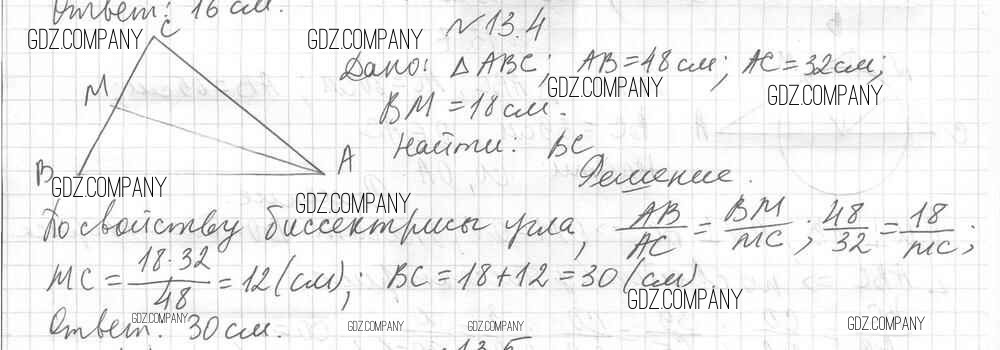 Ответ: 16 см.
№ 13.4
GDZ.COMPANY GDZ.COMPANY
C
Дано: △ABC; AB=48 см; AC=32 см;
GDZ.COMPANY GDZ.COMPANY
M
BM=18 см.
Найти: BC
B A
Решение.
GDZ.COMPANY GDZ.COMPANY
По свойству биссектрисы угла, AB/AC = BM/MC; 48/32 = 18/MC;
MC = 18·32/48 = 12 (см); BC = 18+12 = 30 (см)
GDZ.COMPANY
Ответ: 30 см.
GDZ.COMPANY GDZ.COMPANY GDZ.COMPANY GDZ.COMPANY
13.5